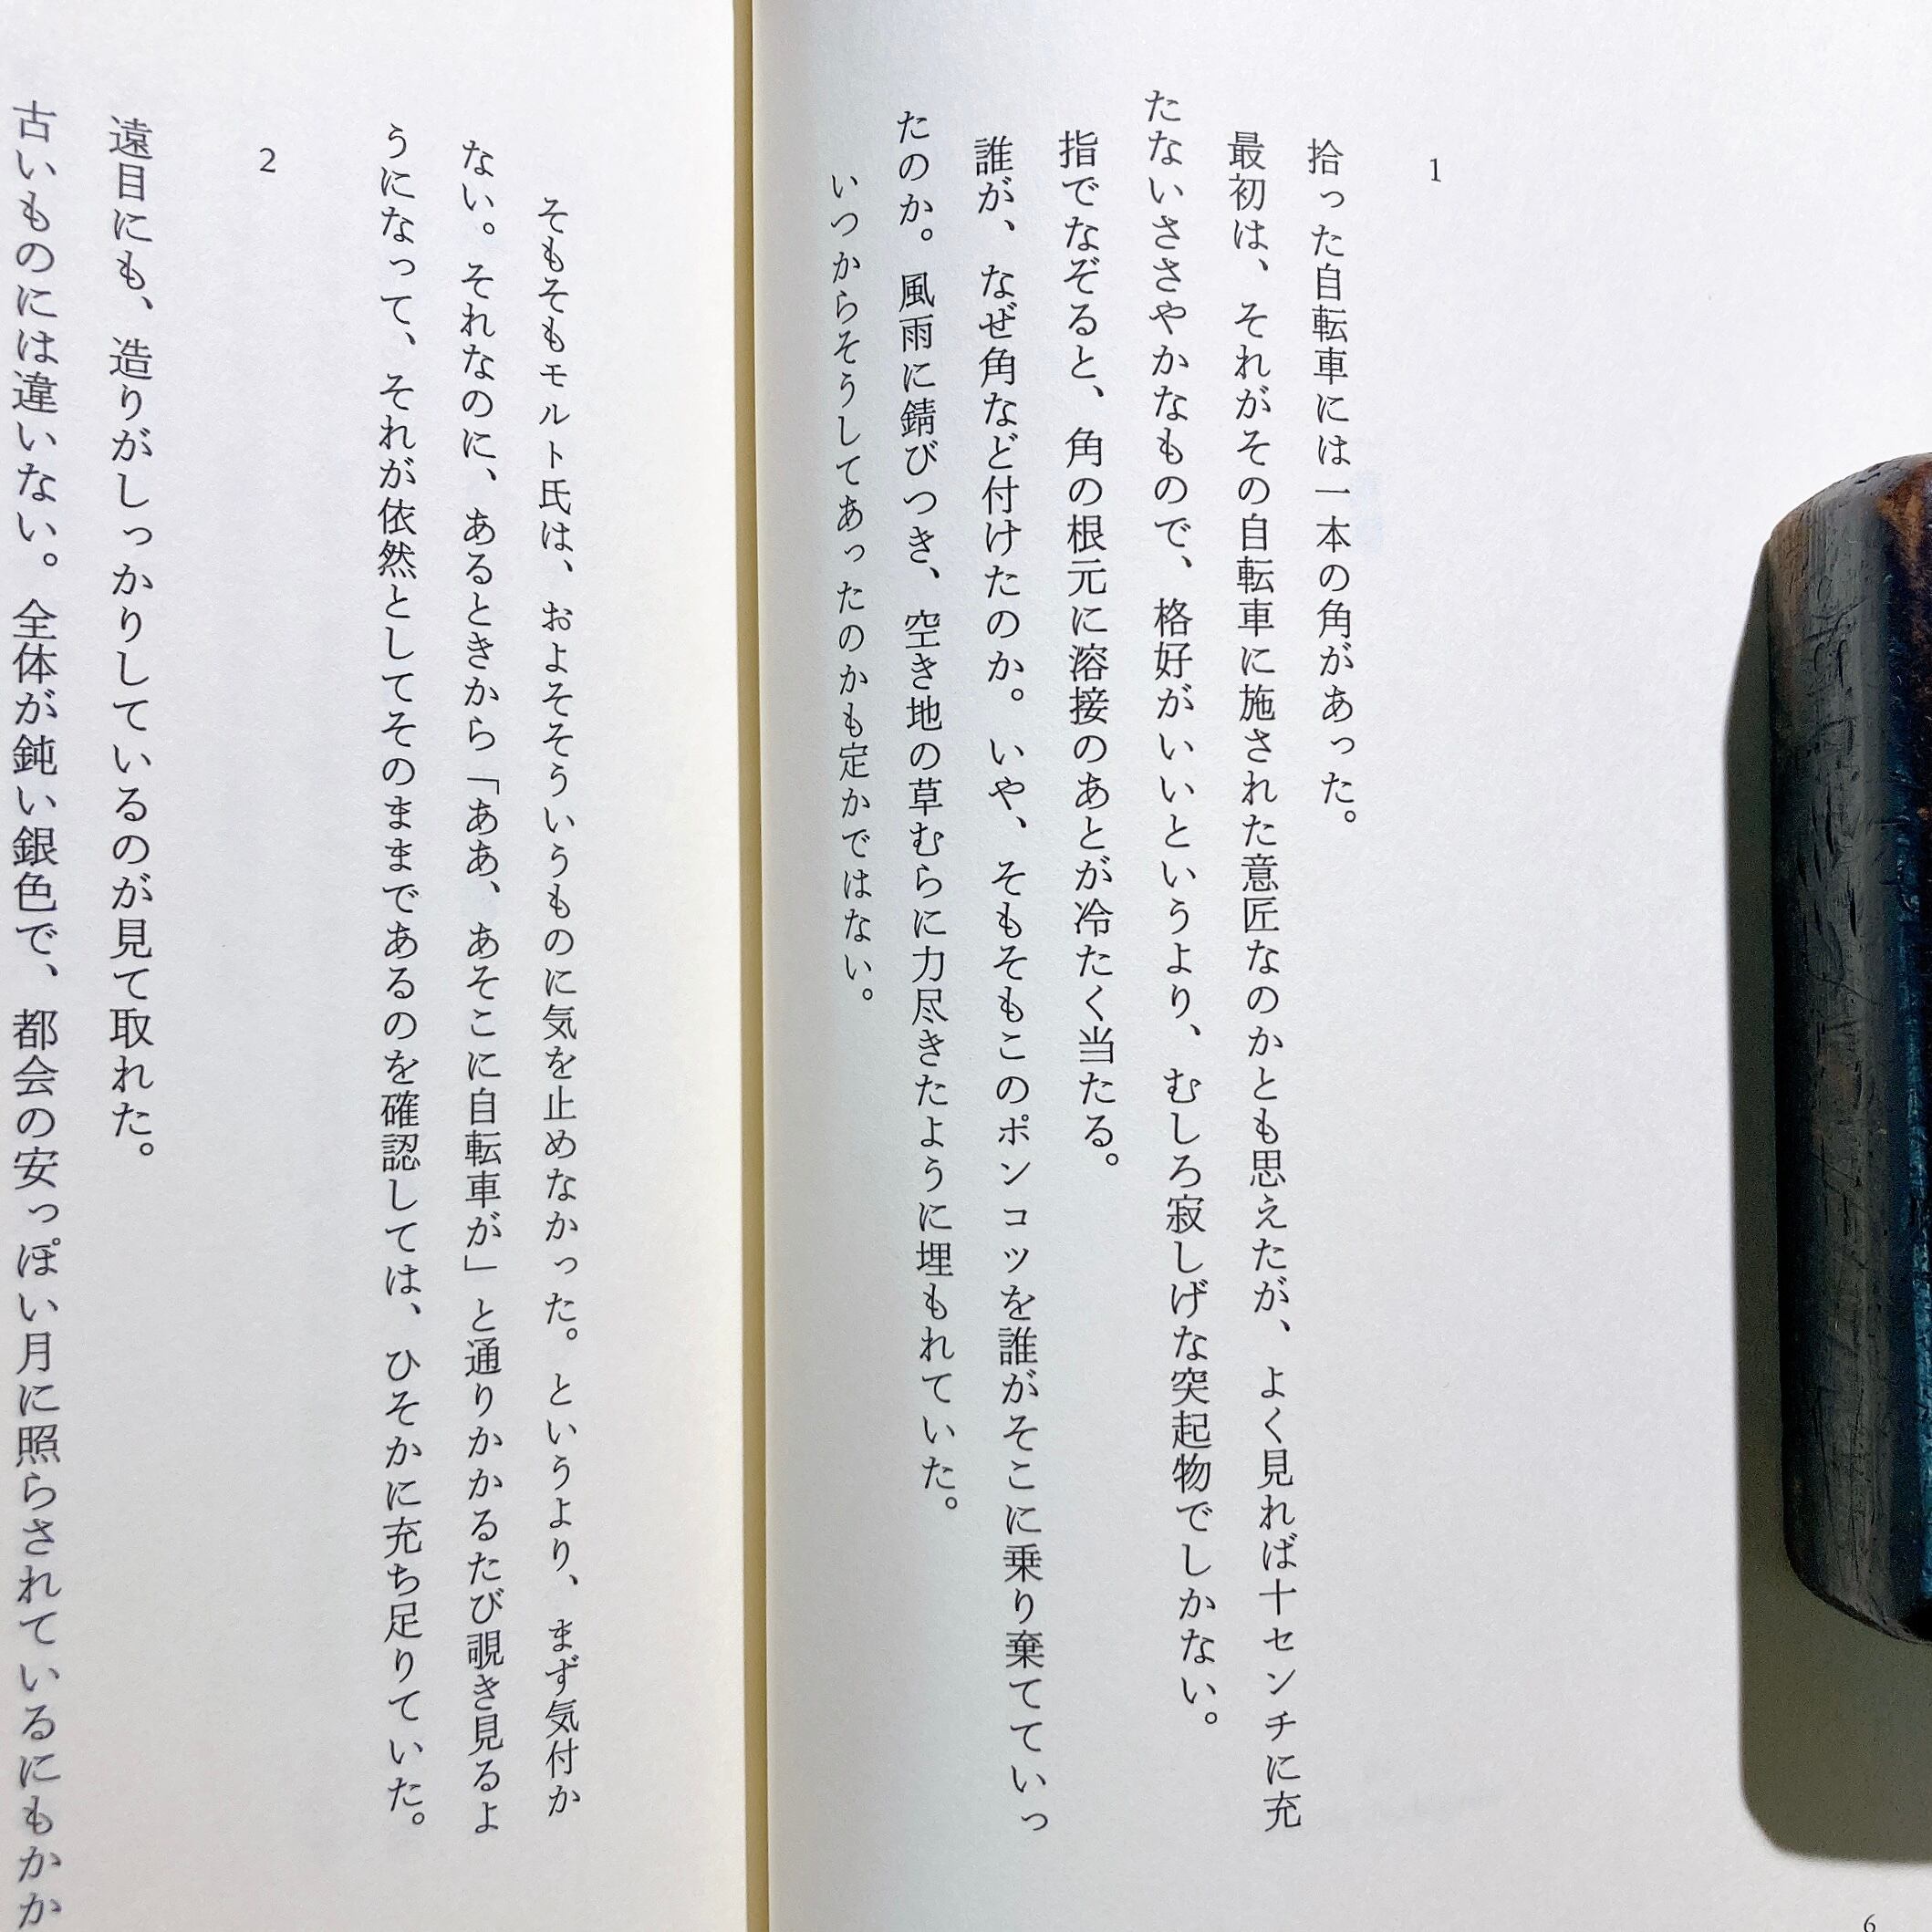 1
拾った自転車には一本の角があった。
最初は、それがその自転車に施された意匠なのかとも思えたが、よく見れば十センチに充
たないささやかなもので、格好がいいというより、むしろ寂しげな突起物でしかない。
指でなぞると、角の根元に溶接のあとが冷たく当たる。
誰が、なぜ角など付けたのか。いや、そもそもこのポンコツを誰がそこに乗り棄てていっ
たのか。風雨に錆びつき、空き地の草むらに力尽きたように埋もれていた。
いつからそうしてあったのかも定かではない。
6
そもそもモルト氏は、およそそういうものに気を止めなかった。というより、まず気付か
ない。それなのに、あるときから「ああ、あそこに自転車が」と通りかかるたび覗き見るよ
うになって、それが依然としてそのままであるのを確認しては、ひそかに充ち足りていた。
2
遠目にも、造りがしっかりしているのが見て取れた。
古いものには違いない。全体が鈍い銀色で、都会の安っぽい月に照らされているにもかか